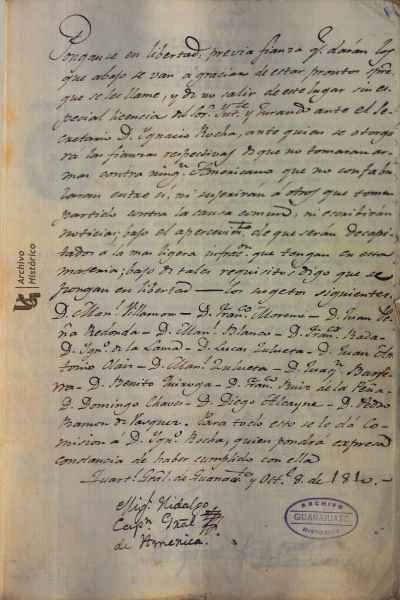 Pongase en libertad, previa fianza q.e darán los
que abajo se van á graciar de estar prontos spre.
que se les llame, y de no salir de este lugar sin es
pecial licencia del Sor. Int.te y jurando ante el Se
cretario D. Ignacio Rocha, ante quien se otorga
ra las fianzas respectivas de que no tomaran ar
mas contra ning.n Americano que no confabu
laran entre sí, ni sugeriran á otros que tomen
partido contra la causa comun, ni escribirán
noticias; bajo el apercevim.to de que serán decapi
tados á la mas ligera infrac.n que tengan en esta
materia; bajo de tales requisitos digo que se
pongan en libertad — los sugetos siguientes.
D. Man.l Villamor — D. Fran.co Moreno — D. Juan
Redonda — D. Man.l Blanco — D. Fran.co Rada —
D. Ygn.o de la — D. Lucas Zulueta — D. Juan An
tonio — D. Man.l Zulueta — D. Juaq.n
— D. Benito — D. Fran.co Ruiz de la Peña —
D. Domingo Chaves — D. Diego Alcayne — D. Pedro
Ramon de Vasquez. Para todo esto se le dá Co
mision á D. Ygn.o Rocha, quien pondrá expresa
constancia de haber cumplido con ella
Quart.l Gral. de Guanax.to y Oct.e 8. de 1810. —
Mig.l Hidalgo
Cap.n Gral
de America.
Archivo
Histórico
ARCHIVO
GUANAJUATO
HISTORICO